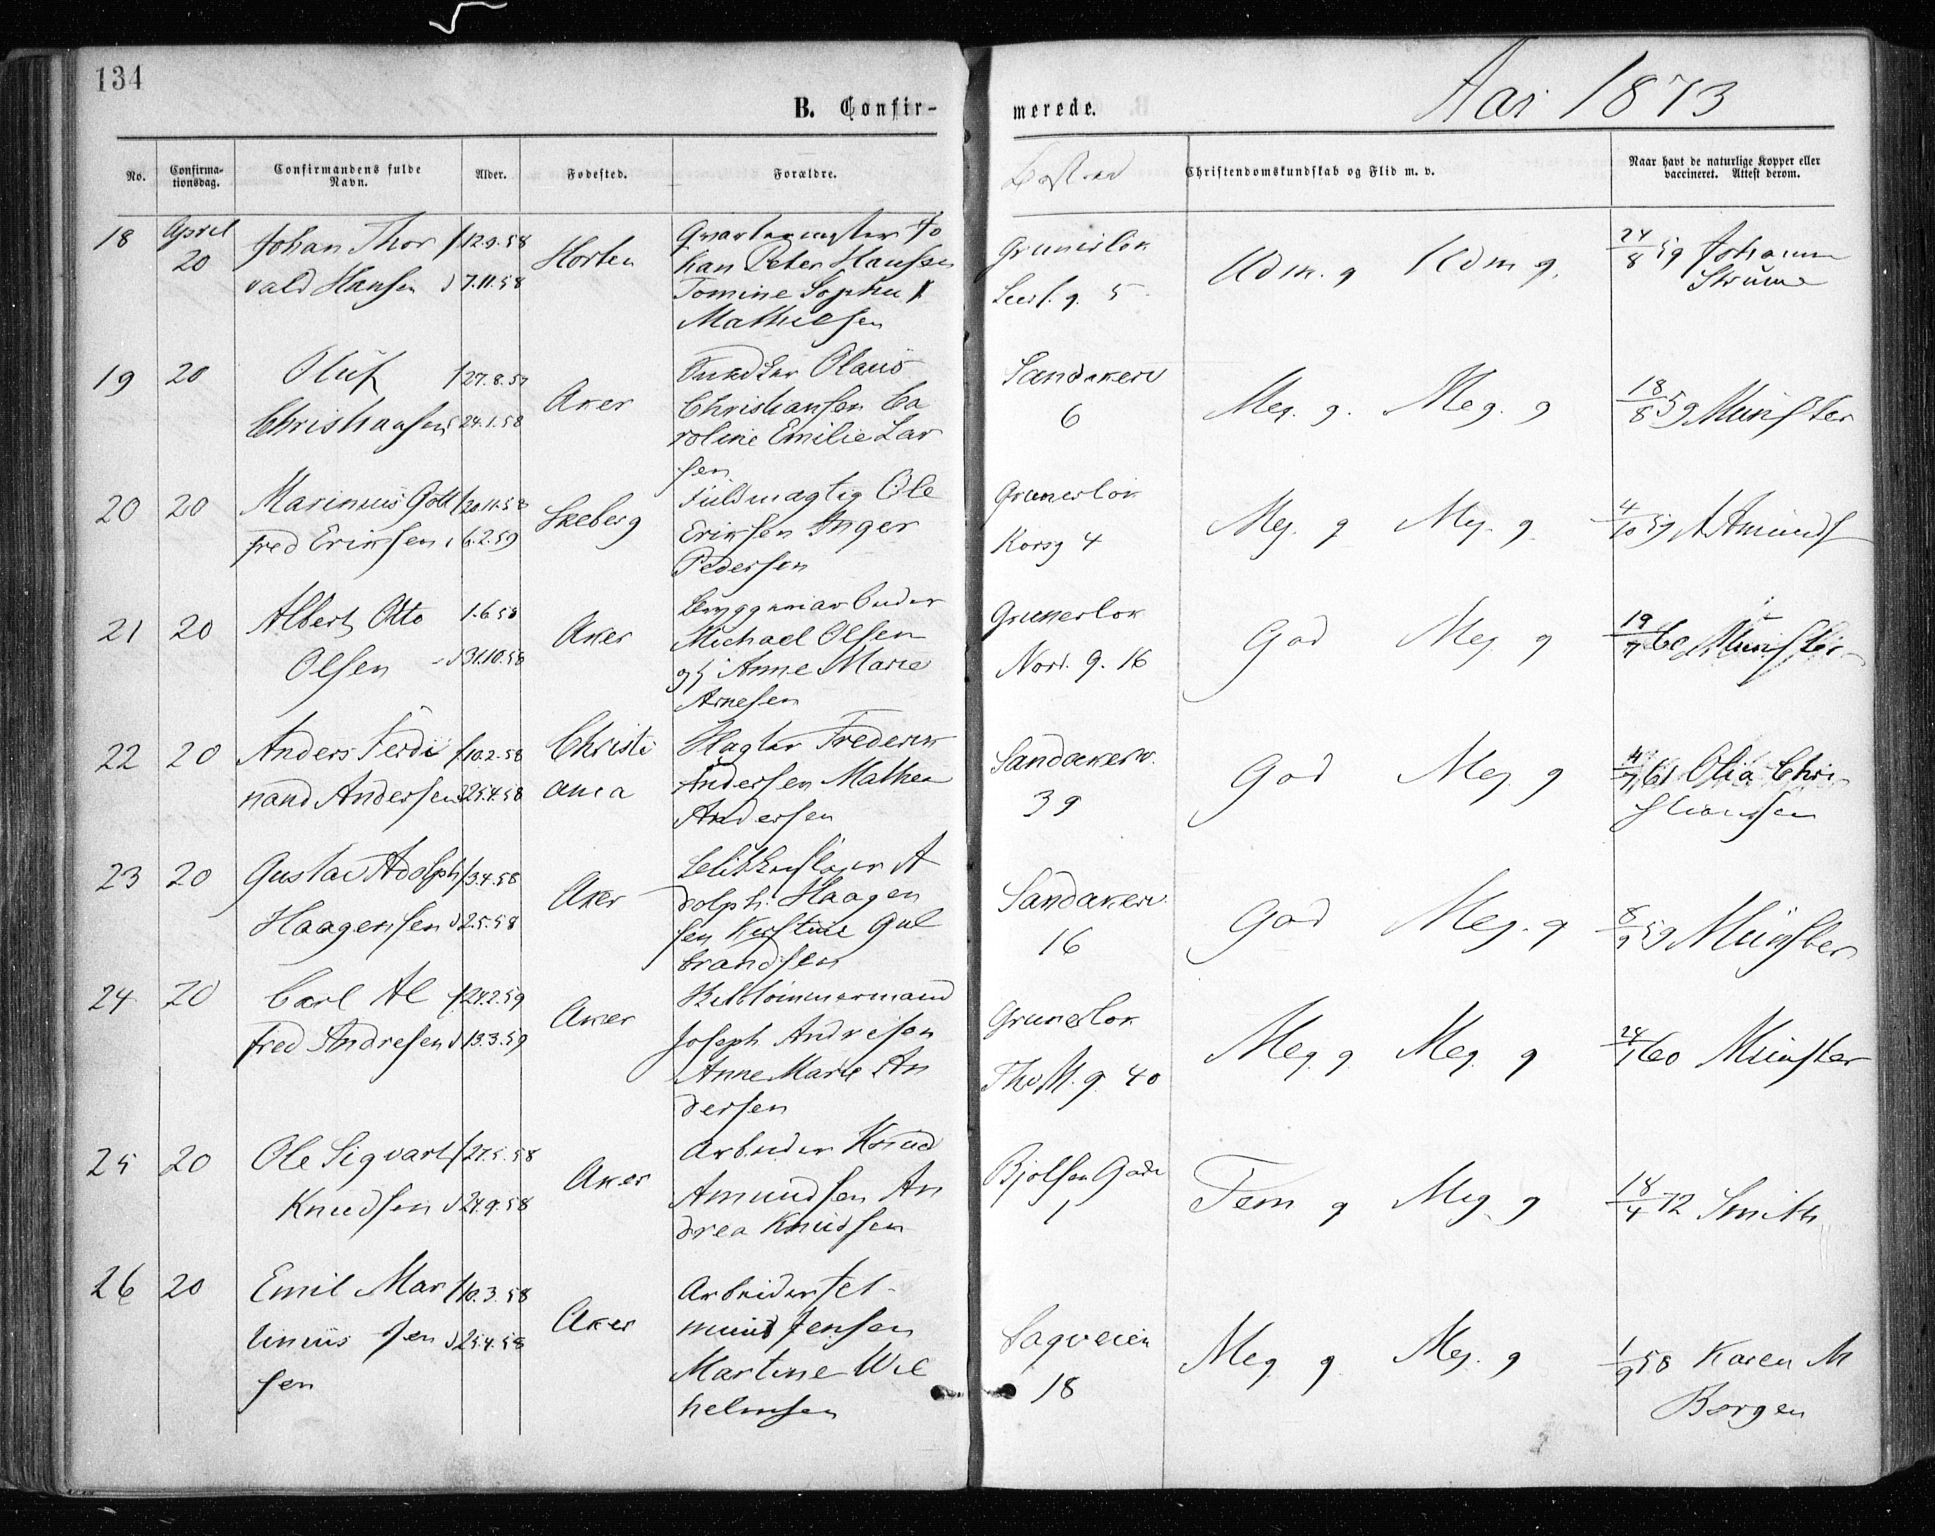 134
B. Confir-
merede.
Aar 1873
No.
Confirma-
tionsdag.
Confirmandens fulde
Navn.
Alder.
Fødested.
Forældre.
Bosted
Christendomskundskab og Flid m. v.
Naar havt de naturlige Kopper eller
vaccineret. Attest derom.
18 April 20
Johan Thor
vald Hansen
f 12.9.58
d 7.11.58
Horten
Qvartermester Jo
han Peter Hansen
Tomine Sophie
Mathiesen
Grünerløk
5
Udm. g Udm g.
24/8 59 Johanne
19 20
Oluf
Christiansen
f 27.8.57
d 24.1.58
Aker
Snedker Olaus
Christiansen Ca
roline Emilie Lar
sen
Sandakerv
6
Meg. g. Meg. g
18/8 59 Münster
20 20
Marinius Gott
fred Eriksen
f 20.11.58
d 6.2.59
Skeberg
Fuldmægtig Ole
Eriksen Inger
Pedersen
Grunerløk
Korsg 4
Meg. g Meg. g
4/10 59 A Amunds
21 20
Albert Otto
Olsen
1.6.58
d 31.10.58
Aker
Bryggeriarbeider
Michael Olsen
og Anne Marie
Arnesen
Grunerløk
Nord. g. 16
God Meg g
19/7 60 Münster
22 20
Anders Ferdi
nand Andersen
f 10.2.58
d 25.4.58
Christi
ania
Slagter Frederik
Andersen Mathea
Andersen
Sandakerv.
39
God Meg. g
4/7 61 Olia Chri
stiansen
23 20
Gustav Adolph
Haagensen
f 3.4.58
d 2.5.58
Aker
A
dolph Haagen
sen Kirstine Gul
brandsen
Sandakerv
16
God Meg. g
8/9 59 Münster
24 20
Carl Al
fred Andresen
f 24.2.59
d 13.3.59
Aker
Skibtømmermand
Joseph Andresen
Anne Marie An
dersen
Grunerløk
Th M. g 40
Meg. g Meg. g
24/1 60 Münster
25 20
Ole Sigvart
Knudsen
f 27.5.58
d 24.9.58
Aker
Arbeider Knud
Amundsen An
drea Knudsen
Bjølsen Gade
1
Tem g Meg. g
18/4 72 Smith
26 20
Emil Mar
tinius Jen
sen
f 10.3.58
d 25.4.58
Aker
Arbeider Tel-
mund Jensen
Martine Wil
helmsen
Sagveien
18
Meg g Meg. g
1/9 58 Karen M
Borgen